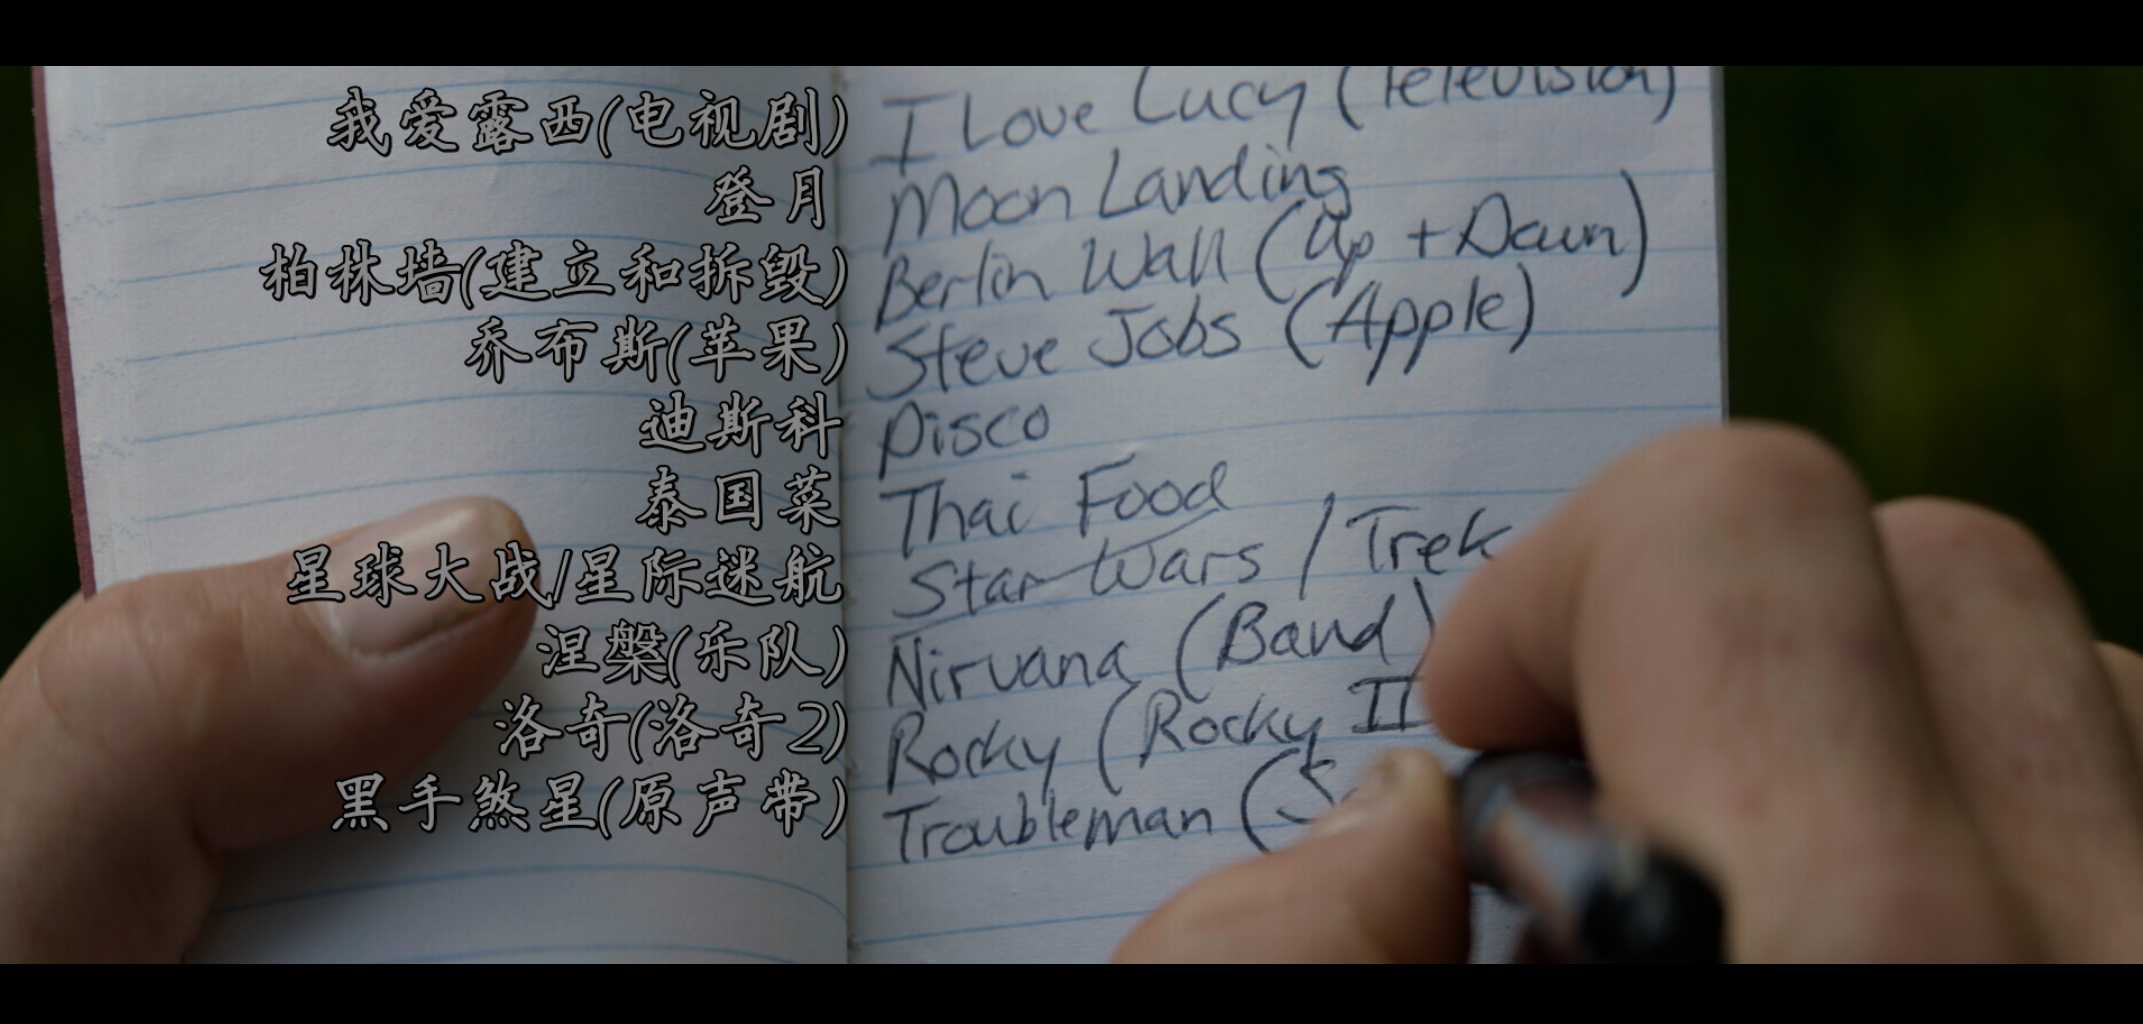 我爱露西(电视剧) I Love Lucy (Television)
登月 Moon Landing
柏林墙(建立和拆毁) Berlin Wall (Up + Down)
乔布斯(苹果) Steve Jobs (Apple)
迪斯科 Disco
泰国菜 Thai Food
星球大战/星际迷航 Star Wars / Trek
涅槃(乐队) Nirvana (Band)
洛奇(洛奇2) Rocky (Rocky II
黑手煞星(原声带) Troubleman (S